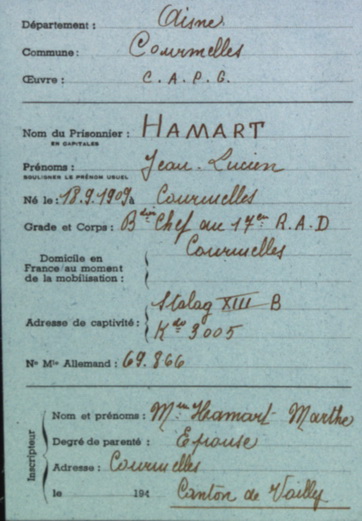 Département : Aisne
Commune : Courmelles
Œuvre : C. A. P. G.
Nom du Prisonnier : HAMART
EN CAPITALES
Prénoms : Jean-Lucien
SOULIGNER LE PRÉNOM USUEL
Né le : 18.9.1909 à Courmelles
Grade et Corps : Bdier Chef au 17em R.A.D
Courmelles
Domicile en
France au moment
de la mobilisation :
Stalag XIII B
Adresse de captivité :
Kdo 3005
No Mle Allemand : 69.866
Inscripteur
Nom et prénoms : Mme Hamart Marthe
Degré de parenté : Epouse
Adresse : Courmelles
le 194 Canton de Vailly